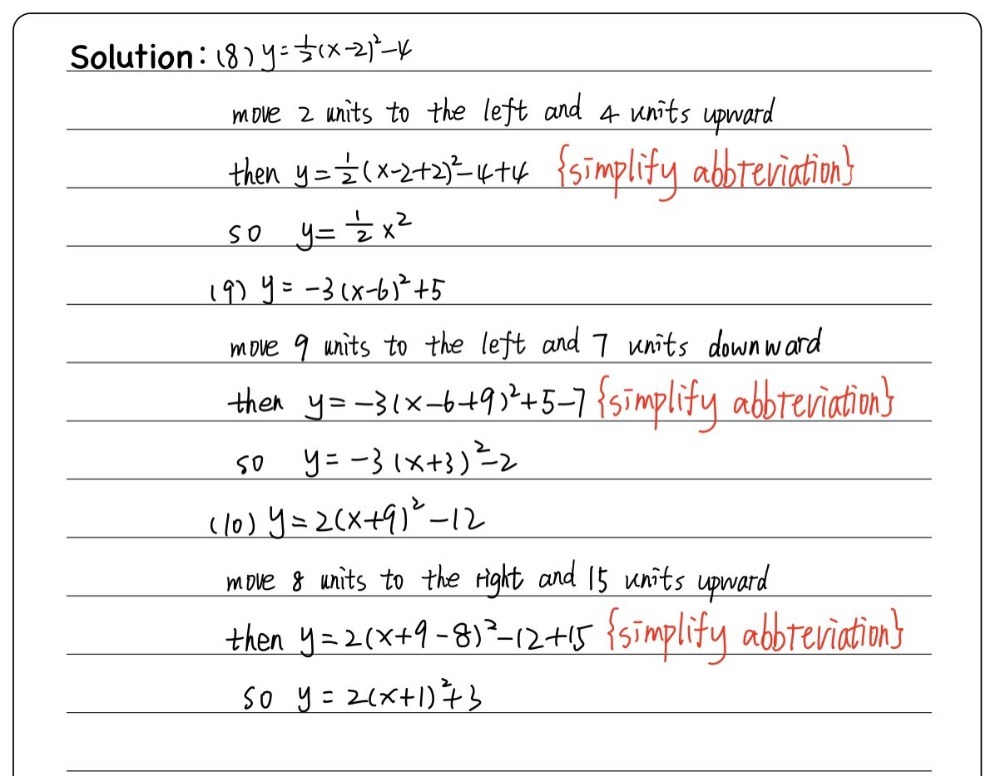 Solution: (8) y=½(x-2)²-4
move 2 units to the left and 4 units upward
then y=½(x-2+2)²-4+4 {simplify abbreviation}
so y=½x²
(9) y=-3(x-6)²+5
move 9 units to the left and 7 units downward
then y=-3(x-6+9)²+5-7 {simplify abbreviation}
so y=-3(x+3)²-2
(10) y=2(x+9)²-12
move 8 units to the right and 15 units upward
then y=2(x+9-8)²-12+15 {simplify abbreviation}
so y=2(x+1)²+3